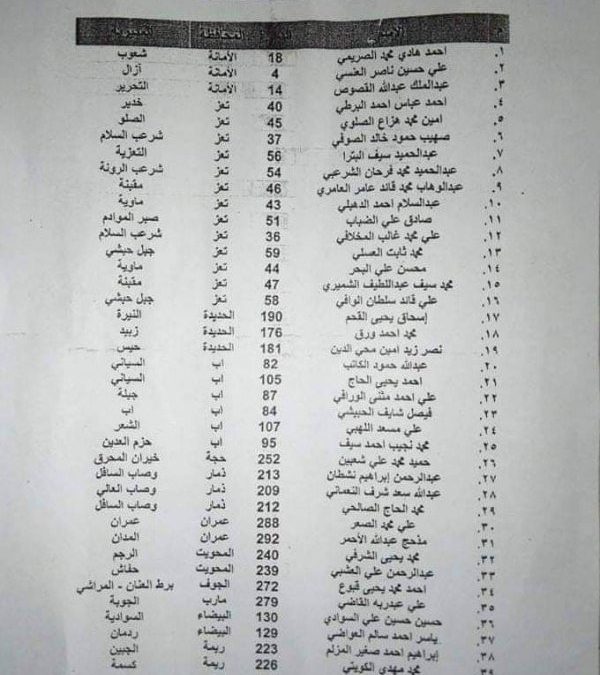 م الاسم المحافظة المديرية
١. احمد هادي محمد الصريمي 18 الأمانة شعوب
٢. علي حسين ناصر العنسي 4 الأمانة آزال
٣. عبدالملك عبدالله القصوص 14 الأمانة التحرير
٤. احمد عباس احمد البرطي 40 تعز خدير
٥. امين محمد هزاع الصلوي 45 تعز الصلو
٦. صهيب حمود خالد الصوفي 37 تعز شرعب السلام
٧. عبدالحميد سيف البترا 56 تعز التعزية
٨. عبدالحميد محمد فرحان الشرعبي 54 تعز شرعب الرونة
٩. عبدالوهاب محمد قائد عامر العامري 46 تعز مقبنة
١٠. عبدالسلام احمد الدهبلي 43 تعز ماوية
١١. صادق علي الضباب 51 تعز صبر الموادم
١٢. علي محمد غالب المخلافي 36 تعز شرعب السلام
١٣. محمد ثابت العسلي 59 تعز جبل حبشي
١٤. محسن علي البحر 44 تعز ماوية
١٥. محمد سيف عبداللطيف الشميري 47 تعز مقبنة
١٦. علي قائد سلطان الوافي 58 تعز جبل حبشي
١٧. إسحاق يحيى القحم 190 الحديدة النيرة
١٨. محمد احمد ورق 176 الحديدة زبيد
١٩. نصر زيد امين محي الدين 181 الحديدة حيس
٢٠. عبدالله حمود الكاتب 82 اب السياني
٢١. احمد يحيى الحاج 105 اب السياني
٢٢. علي احمد مثنى الورافي 87 اب جبلة
٢٣. فيصل شايف الحبيشي 84 اب اب
٢٤. علي مسعد اللهبي 107 اب الشعر
٢٥. محمد نجيب احمد سيف 95 اب حزم العدين
٢٦. حميد محمد علي شعبين 252 حجة خيران المحرق
٢٧. عبدالرحمن إبراهيم نشطان 213 ذمار وصاب السافل
٢٨. عبدالله سعد شرف النعماني 209 ذمار وصاب العالي
٢٩. محمد الحاج الصالحي 212 ذمار وصاب السافل
٣٠. علي محمد الصعر 288 عمران عمران
٣١. مذحج عبدالله الأحمر 292 عمران المدان
٣٢. محمد يحيى الشرفي 240 المحويت الرجم
٣٣. عبدالرحمن علي العشبي 239 المحويت حفاش
٣٤. احمد محمد يحيى قبوع 272 الجوف برط العنان - المراشي
٣٥. علي عبدربه القاضي 279 مارب الجوبة
٣٦. حسين حسين علي السوادي 130 البيضاء السوادية
٣٧. ياسر احمد سالم العواضي 129 البيضاء ردمان
٣٨. إبراهيم احمد صغير المزلم 223 ريمة الجبين
٣٩. محمد مهدي الكويتي 226 ريمة كسمة